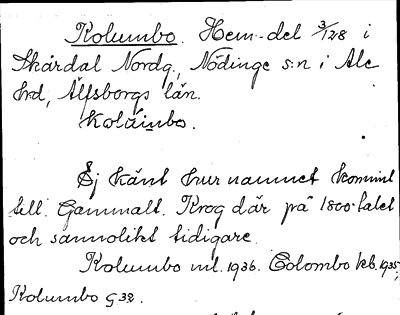 Kolumbo. Hem.-del 3/128 i
Skårdal Nordg., Nödinge s:n i Ale
hrd, Älfsborgs län.
Kolúmbo.
Ej känt hur namnet kommit
till. Gammalt. Krog där på 1800-talet
och sannolikt tidigare.
Kolumbo ml. 1936. Colombo kb. 1935,
Kolumbo G 32.